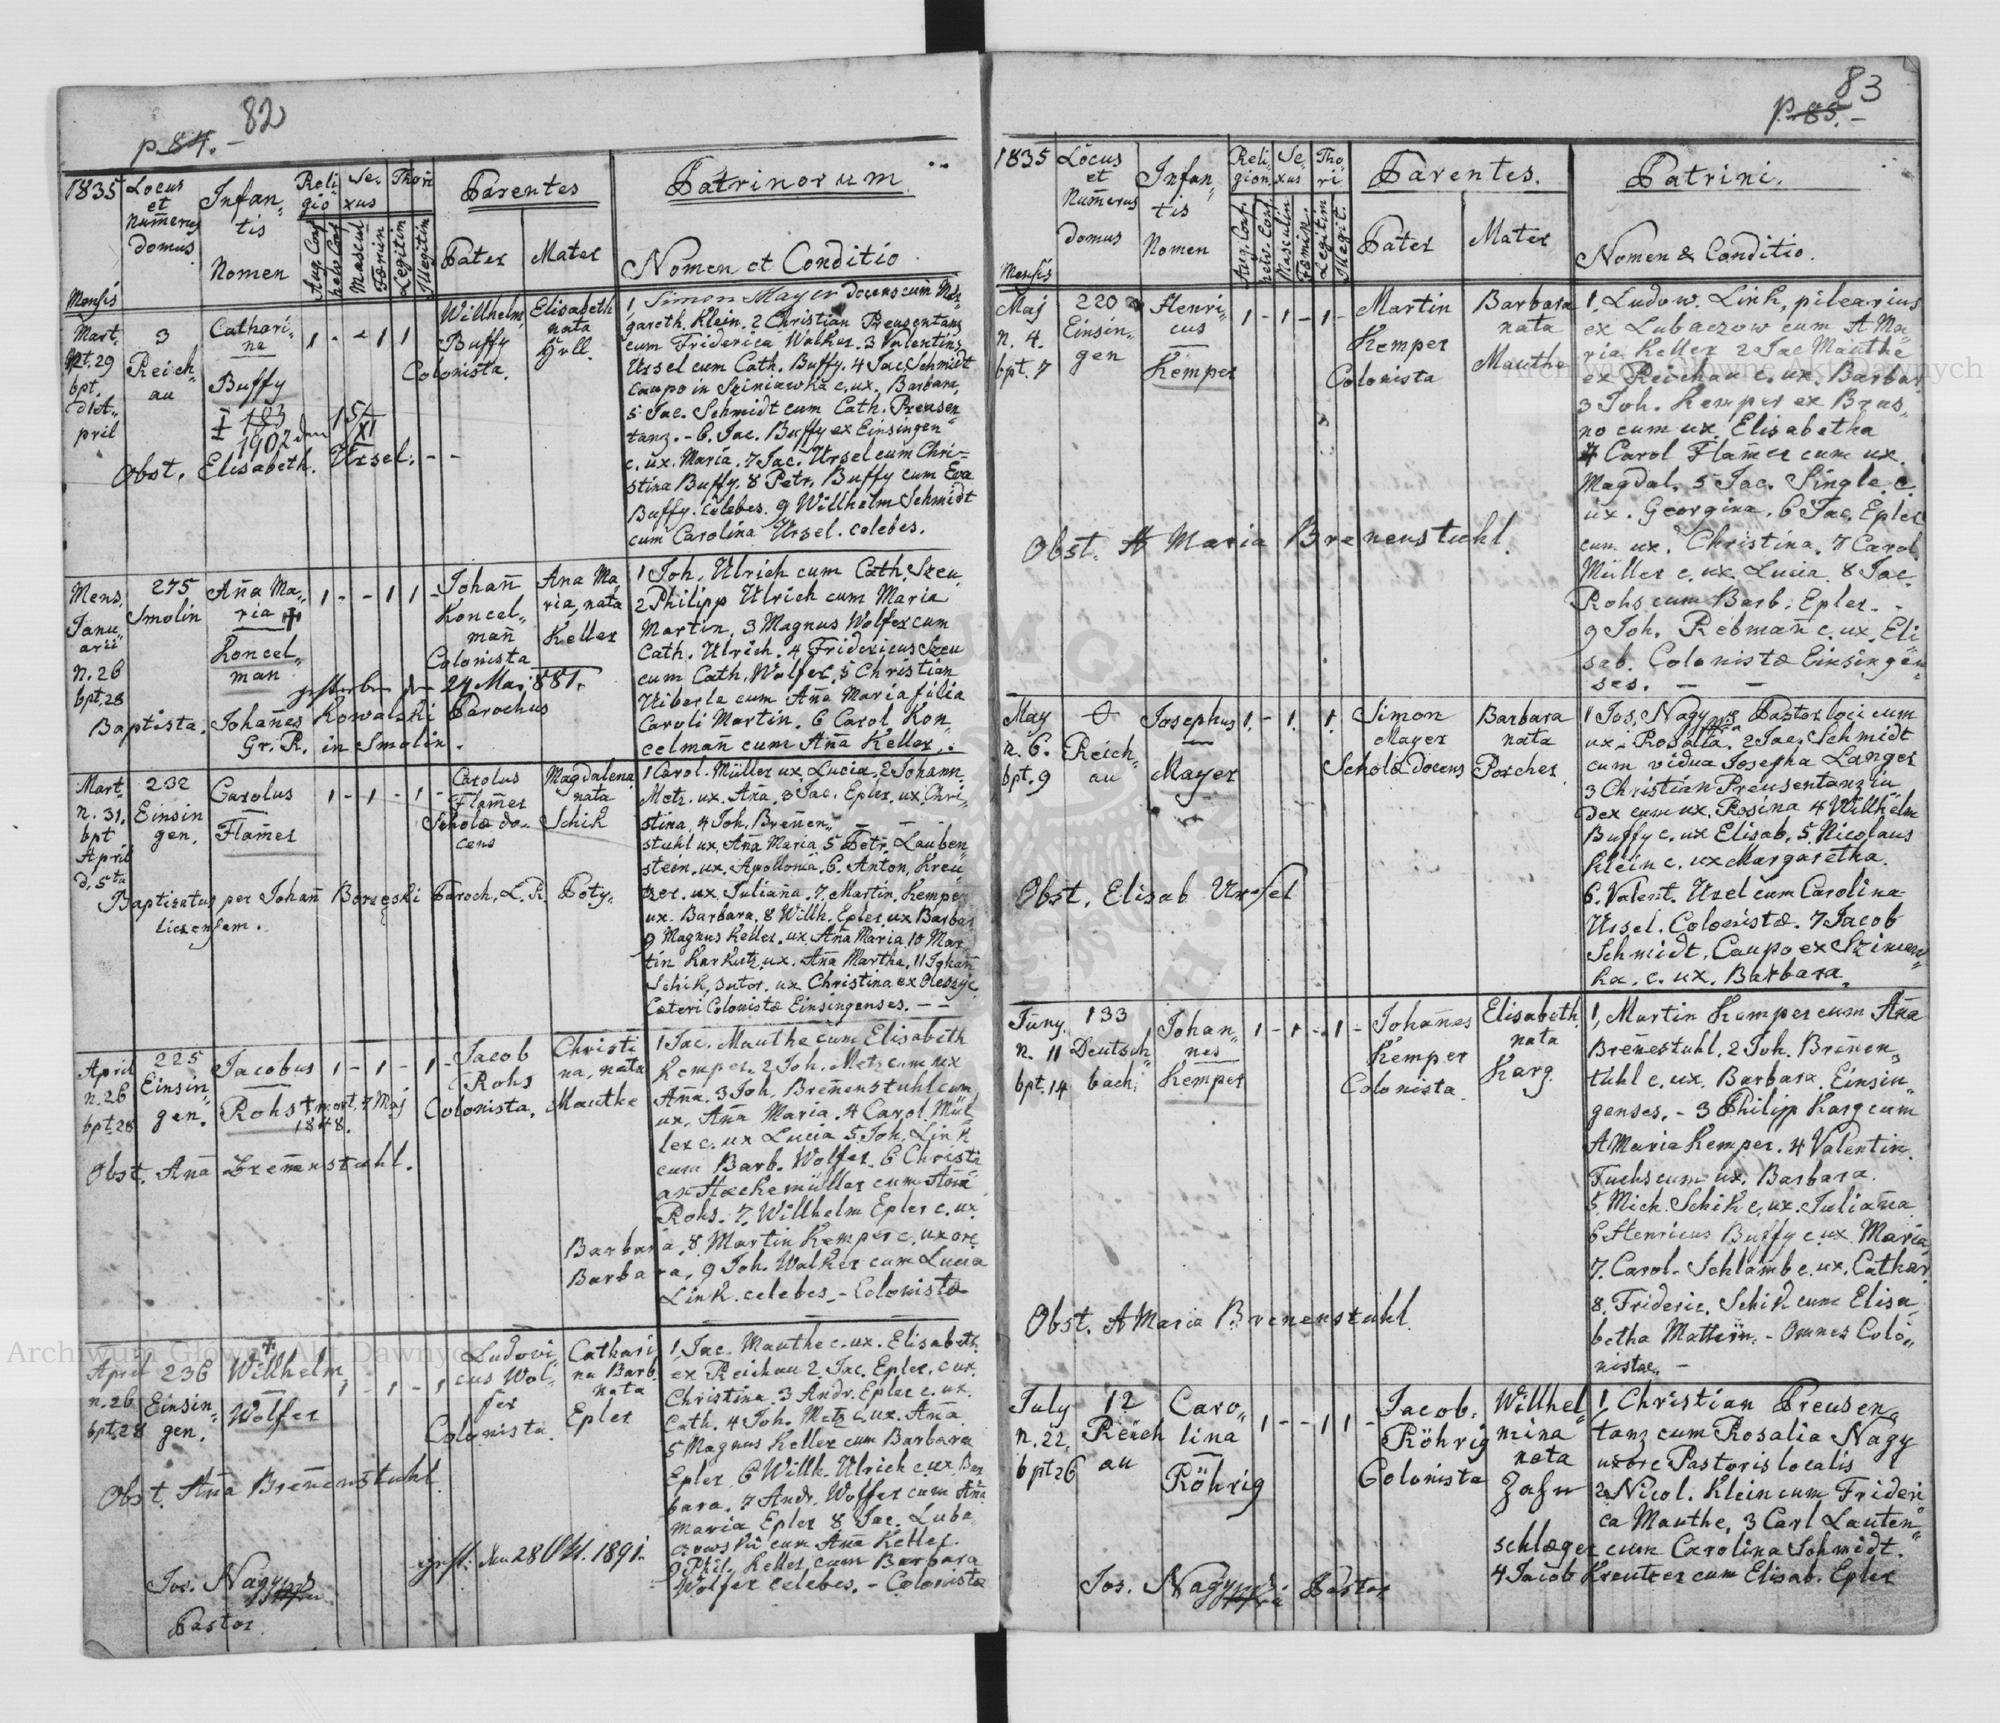 82
p. 84. -
1835
Locus et Numerus domus
Infantis Nomen
Religio
Sexus
Thori
Aug. Conf
helv. Conf
Mascul
Fœmin
Legitim
Illegitim
Parentes
Pater
Mater
Patrinorum
Nomen et Conditio
Mensis
Mart.
bpt.
pril
3
Reich„
au
Cathari„
na
Buffy
1902 den 15/XI
Obst. Elisabeth. Ursel. - -
1 - - 1 1
Willhelm
Buffy
Colonista.
Elisabeth
nata
1 Simon Mayer docens cum Mar„
gareth. Klein. 2 Christian Preusentanz
cum Friderica Walker. 3 Valentinz
Ursel cum Cath. Buffy. 4 Jac. Schmidt
Caupo in c. ux. Barbara,
5 Jac. Schmidt cum Cath. Preusen„
tanz. - 6. Jac. Buffy ex Einsingen
c. ux. Maria. 7 Jac. Ursel cum Chri=
stina Buffy. 8 Petr. Buffy cum Eva
Buffy. celebes. 9 Willhelm Schmidt
cum Carolina Ursel. celebes.
Mens.
Janu„
arii
n. 26
bpt. 28
275
Smolin
Aña Ma„
ria +
Koncel„
man
1 - - 1 1 -
Johañ
Koncel„
mañ
Colonista
Ana Ma
ria, nata
Keller
gestorben den 24 Mai 881.
Baptista. Johañes Kowalski Parochus
Gr. R. in Smolin.
1 Joh. Ulrich cum Cath. Szeu.
2 Philipp Ulrich cum Maria
Martin. 3 Magnus Wolfer cum
Cath. Ulrich. 4 Fridericus Szeu
cum Cath. Wolfer. 5 Christian
Uiberle cum Aña Maria filia
Caroli Martin. 6 Carol Kon„
celmañ cum Aña Keller.
Mart.
n. 31.
bpt
April
d. 5ta
232
Einsin
gen.
Carolus
Flam̃er
1 - 1 - 1 -
Carolus
Flam̃er
Scholæ do„
cens
Magdalena
nata
Schik
Baptizatus per Johañ Paroch. L. R. Poty„
liczensem.
1 Carol. Müller ux. Lucia. 2 Johann.
Metz. ux. Aña. 3 Jac. Epler. ux. Chri„
stina. 4 Joh. Brenen„
stuhl ux. Aña Maria 5 Petr. Lauben
stein. ux. Apollonia. 6. Anton. Kreu„
tzer. ux Juliaña. 7. Martin. Kemper
ux. Barbara. 8 Willh. Epler ux Barbar
9 Magnus Keller. ux. Aña Maria. 10 Mar„
tin Karkutz. ux. Aña Martha. 11 Johañ
Schik, sutor. ux Christina ex
Cæteri Colonistæ Einsingenses. - -
April
n. 26
bpt. 28
225
Einsin„
gen.
Jacobus
Rohs + mort. 7 Maj
1848.
1 - 1 - 1 -
Jacob
Rohs
Colonista.
Christi
na, nata
Mauthe
Obst. Aña Breñenstuhl.
1 Jac. Mauthe cum Elisabeth
Kemper. 2 Joh. Metz cum ux
Aña. 3 Joh. Breñenstuhl cum
ux. Aña Maria. 4 Carol Mül„
ler c. ux Lucia 5 Joh. Link
cum Barb. Wolfer. 6 Christi
an Hackemüller cum Aña
Rohs. 7. Willhelm Epler c. ux.
Barbara. 8 Martin Kemper c. uxore
Barbara. 9 Joh. Walker cum Lucia
Link. celebes. - Colonistæ
April
n. 26
bpt. 28
236
Einsin„
gen.
+
Willhelm
Wolfer
1 - 1 - 1
Ludovi„
cus Wol„
fer
Colonista.
Cathari
na Barb.
nata
Epler
Obst. Aña Breñenstuhl.
1 Jac. Mauthe c. ux. Elisabeth.
ex Reichau 2. Jac. Epler. c. ux.
Christina. 3 Andr. Epler c. ux.
Cath. 4 Joh. Metz c. ux. Aña.
5 Magnus Keller cum Barbara
Epler. 6 Willh. Ulrich c. ux. Bar
bara. 7 Andr. Wolfer cum Aña
Maria Epler 8 Jac. Luba
czowski cum Aña Keller
9 Phil. Keller cum Barbara
Wolfer celebes. - Colonistæ
gest: den 28 Okt. 1891.
Jos. Nagy
Pastor.
83
p. 85. -
1835
Locus et Numerus domus
Infantis Nomen
Religion.
Sexus
Thori
Aug. Conf.
helv. Conf
Masculin
Fœmin.
Legitim
Illegit.
Parentes.
Pater
Mater
Patrini.
Nomen & Conditio.
Mensis
Maj
n. 4.
bpt. 7
220
Einsin„
gen
Henri„
cus
Kemper
1 - 1 - 1 -
Martin
Kemper
Colonista
Barbara
nata
Mauthe
Obst. A Maria Brenenstuhl.
1. Ludow. Link, pilearius
ex Lubaczow cum A Ma„
ria Keller 2 Jac Mauthe
ex Reichau c. ux. Barbar
3 Joh. Kemper ex Brus„
no cum ux. Elisabetha
4 Carol Flam̃er cum ux.
Magdal. 5 Jac. Single. c.
ux. Georgina. 6 Jac. Epler
cum ux. Christina. 7 Carol
Müller c. ux. Lucia. 8 Jac.
Rohs cum Barb. Epler. -
9 Joh. Rebmañ c. ux. Eli
sab. Colonistæ Einsingen„
ses. - -
May
n. 6.
bpt. 9
Reich„
au
Josephus
Mayer
1 - 1 . 1.
Simon
Mayer
Scholæ Docens
Barbara
nata
Porcher
Obst. Elisab Ursel
1 Jos. Nagy Pastor loci cum
ux. Rosalia. 2 Jac. Schmidt
cum vidua Josepha Langer
3 Christian Preusentanz iu„
dex cum ux. Rosina 4 Willhelm
Buffy c. ux Elisab. 5 Nicolaus
Klein c. ux Margaretha.
6. Valent. Ursel cum Carolina
Ursel. Colonistæ. 7 Jacob
Schmidt. Caupo ex
ka. c. ux. Barbara.
Juny.
n. 11
bpt. 14
133
Deutsch„
bach.
Johan„
nes
Kemper
1 - 1 - 1 -
Johañes
Kemper
Colonista
Elisabeth.
nata
Karg.
Obst. A Maria Brenenstuhl.
1. Martin Kemper cum Aña
Breñestuhl. 2 Joh. Breñen„
stuhl c. ux. Barbara. Einsin„
genses. - 3 Philipp Karg cum
A Maria Kemper. 4 Valentin.
Fuchs cum ux. Barbara.
5. Mich. Schik c. ux. Juliaña.
6 Henricus Buffy c. ux. Maria.
7. Carol. Schlamb c. ux. Cathar.
8. Frideric. Schik cum Elisa„
betha Mattern. - Omnes Colo„
nistæ. -
July
n. 22.
bpt 26
12
Reich
au
Caro„
lina
Röhrig
1 - - 1 1 -
Jacob.
Röhrig
Colonista
Willhel„
mina
nata
Zahn
1. Christian Preusen„
tanz cum Rosalia Nagy
uxore Pastoris localis
2 Nicol. Klein cum Frideri„
ca Mauthe. 3 Carl Lauten„
schlæger cum Carolina Schmidt.
4 Jacob Kreutzer cum Elisab. Epler
Jos. Nagy Pastor
Archiwum Główne Akt Dawnych
Archiwum Główne Akt Dawnych